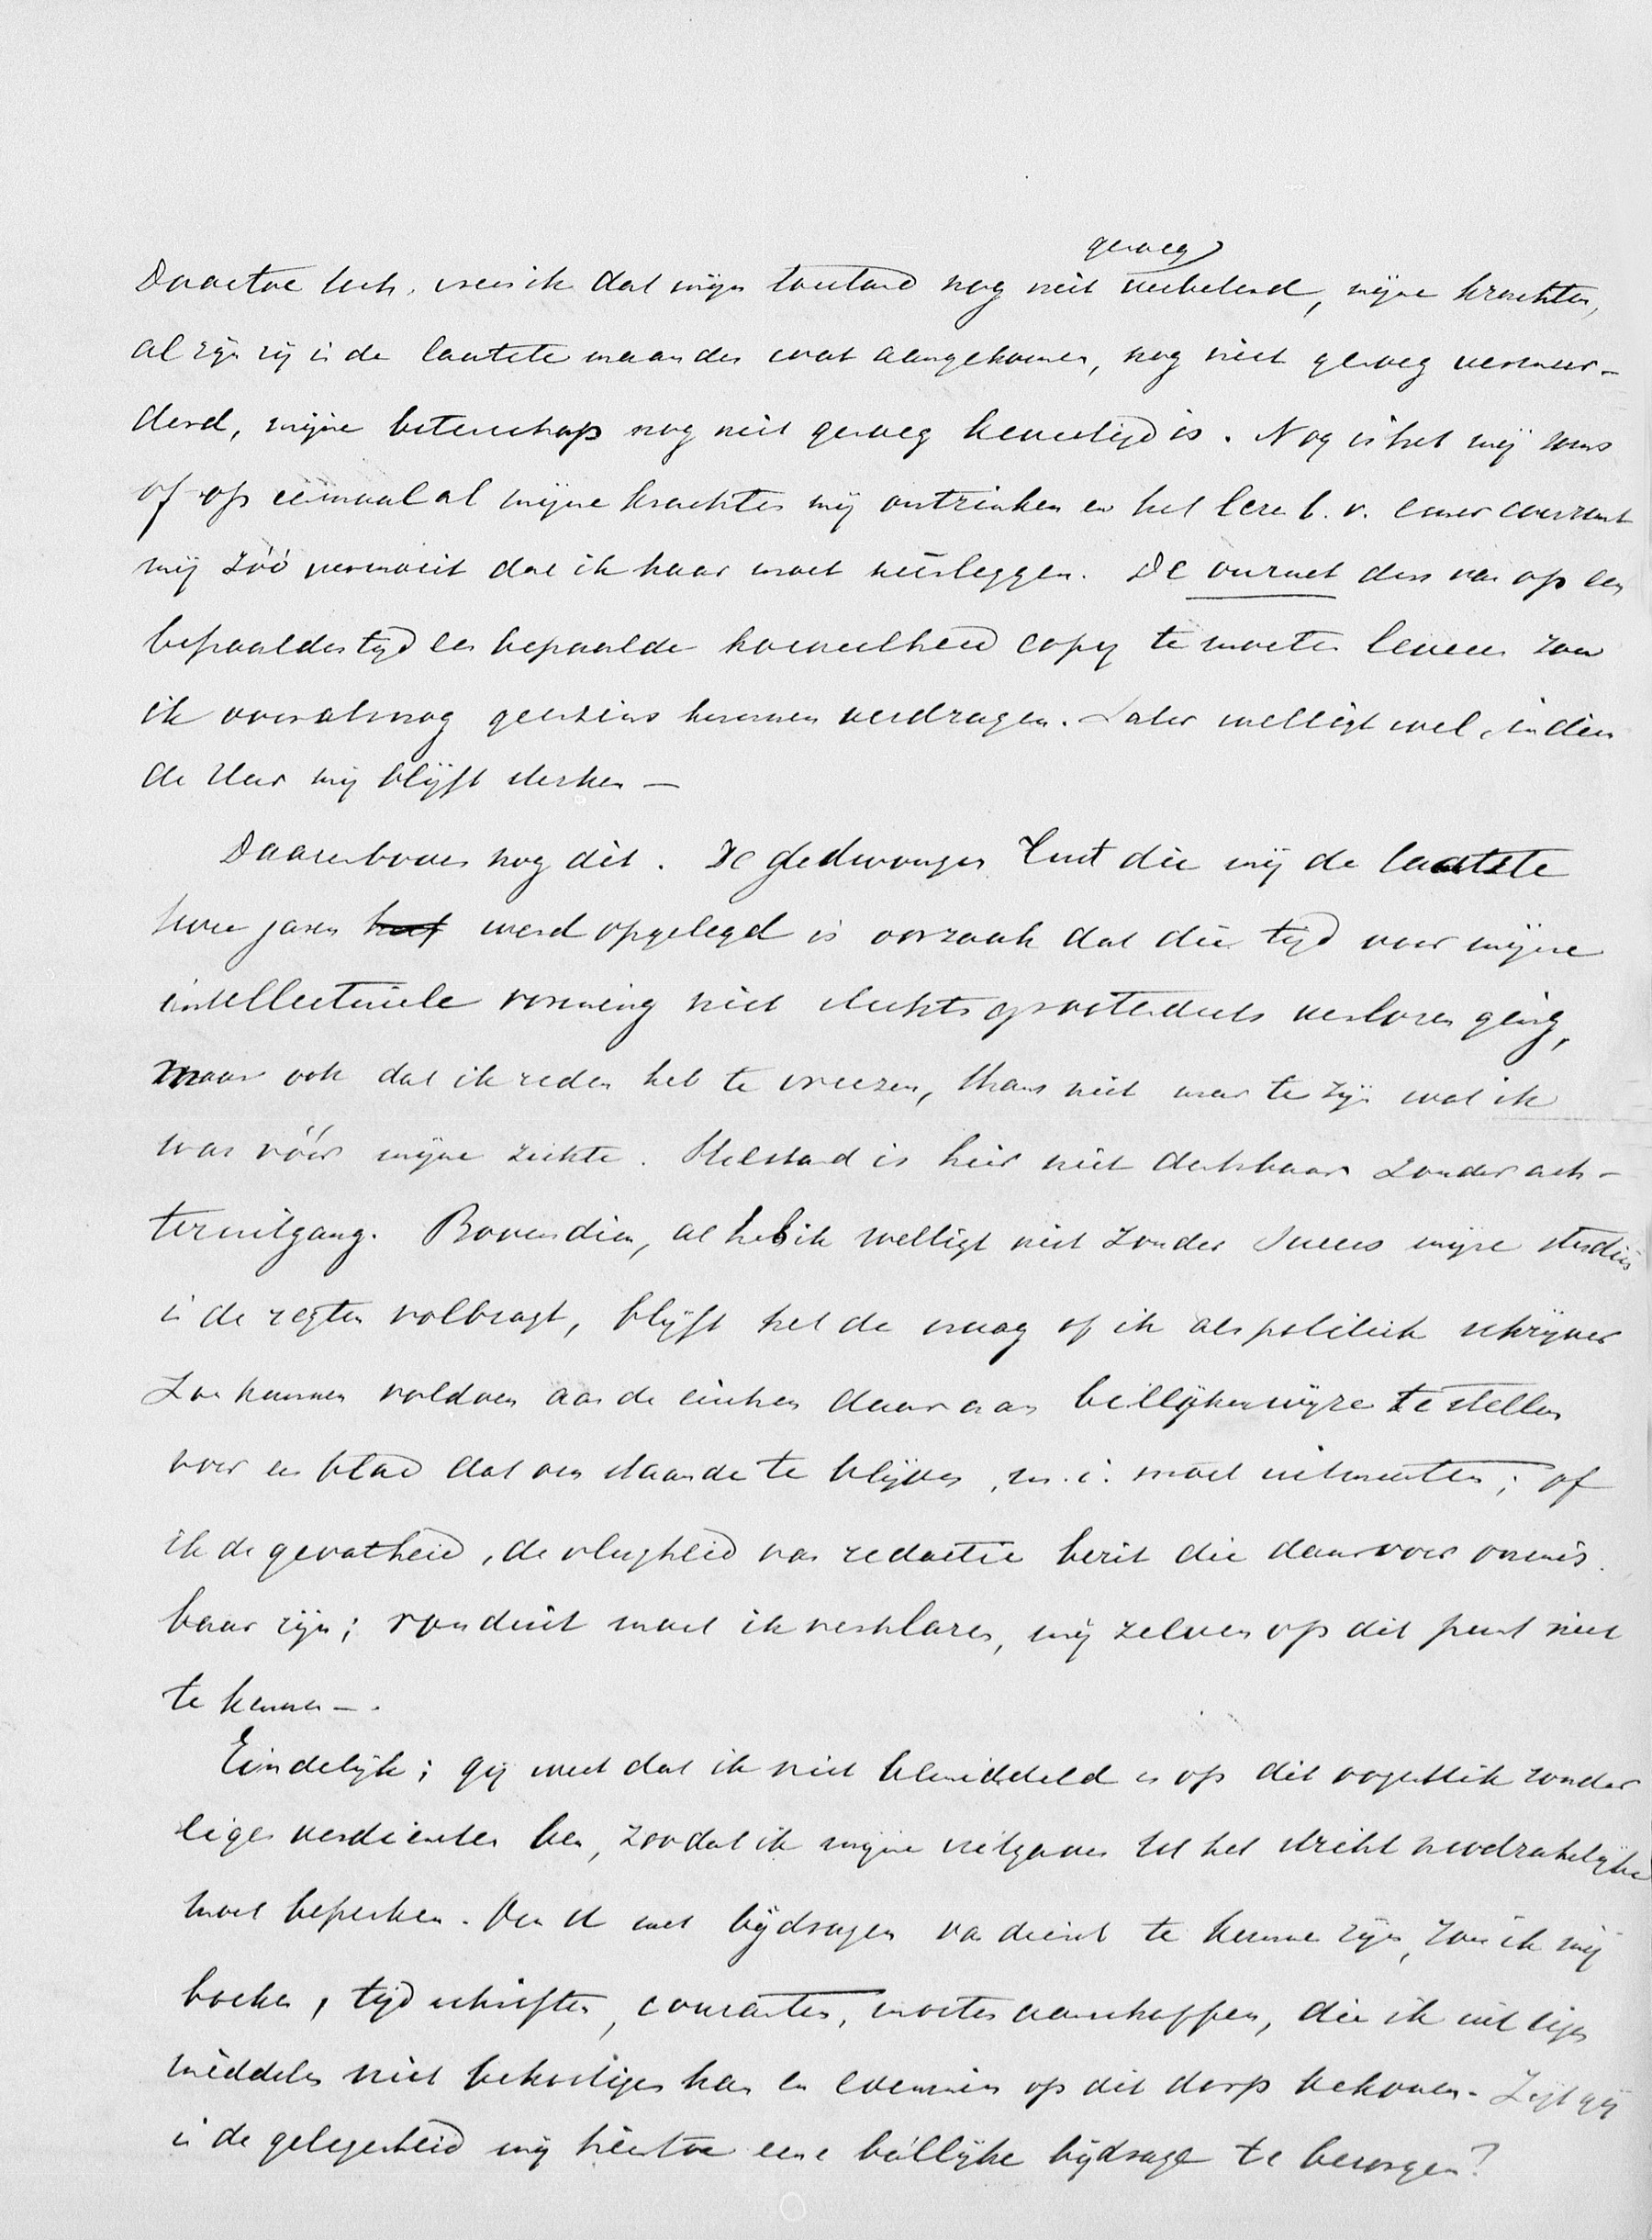 genoeg
Daartoe toch, vrees ik dat mijn toestand nog niet verbeterd, mijne krachten,
al zijn zij in de laatste maanden wat aangekomen, nog niet genoeg vermeer-
derd, mijne beterschap nog niet genoeg bevestigd is. Nog is het mij soms
of op eenmaal al mijne krachten mij ontzinken en het lezen b. v. eener courant
mij zóó vermoeit dat ik haar moet neêrleggen. De onrust dus van op een
bepaalden tijd een bepaalde hoeveelheid copy te moeten leveren zou
ik vooralsnog geenzins kunnen verdragen. Later welligt wel, indien
de Heer mij blijft sterken —
Daarenboven nog dit. De gedwongen rust die mij de laatste
twee jaren heeft werd opgelegd is oorzaak dat die tijd voor mijne
intellectuele vorming niet slechts grootendeels verloren ging,
maar ook dat ik reden heb te vreezen, thans niet meer te zijn wat ik
was vóór mijne ziekte. Stilstand is hier niet denkbaar zonder ach-
teruitgang. Bovendien, al heb ik welligt niet zonder succes mijne studiën
in de regten volbragt, blijft het de vraag of ik als politiek schrijver
zou kunnen voldoen aan de eischen daaraan billijkerwijze te stellen
voor een blad dat om staande te blijven, m. i. moet uitmunten; of
ik de gevatheid, de vlugheid van redactie bezit die daarvoor onmis-
baar zijn; ronduit moet ik verklaren, mij zelven op dit punt niet
te kennen —.
Eindelijk; gij weet dat ik niet bemiddeld en op dit oogenblik zonder
eigen verdiensten ben, zoodat ik mijne uitgaven tot het strikt noodzakelijke
moet beperken. Om U met bijdragen van dienst te kunnen zijn, zou ik mij
boeken, tijdschriften, couranten, moeten aanschaffen, die ik uit eigen
middelen niet bekostigen kan en evenmin op dit dorp bekomen. Zijt gij
in de gelegenheid mij hiertoe eene billijke bijdrage te bezorgen?